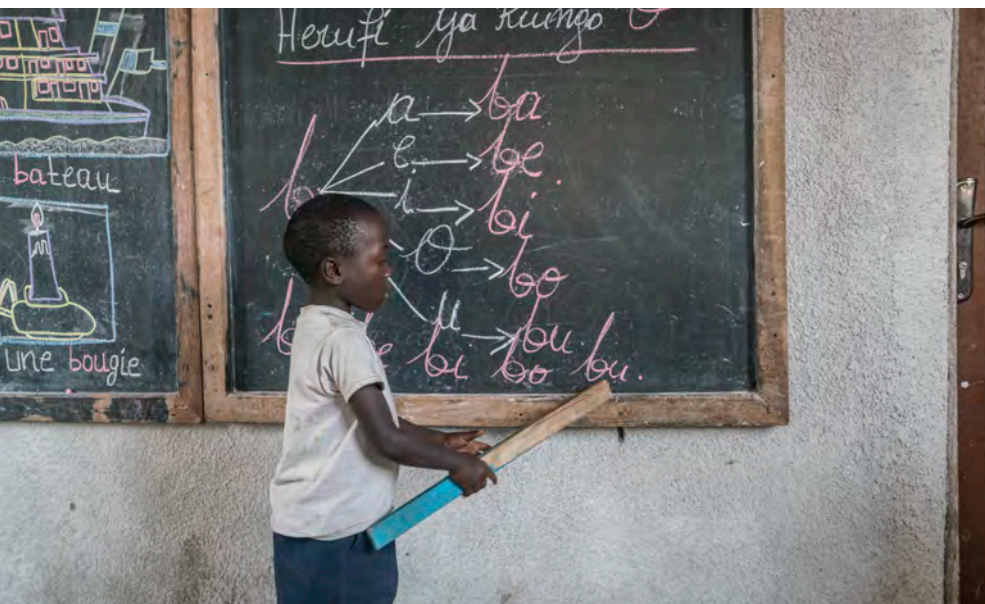 bateau
une bougie
Herufi ya Kiungo b
b
a ba
e be
i bi
o bo
u bu
bi bo bu.